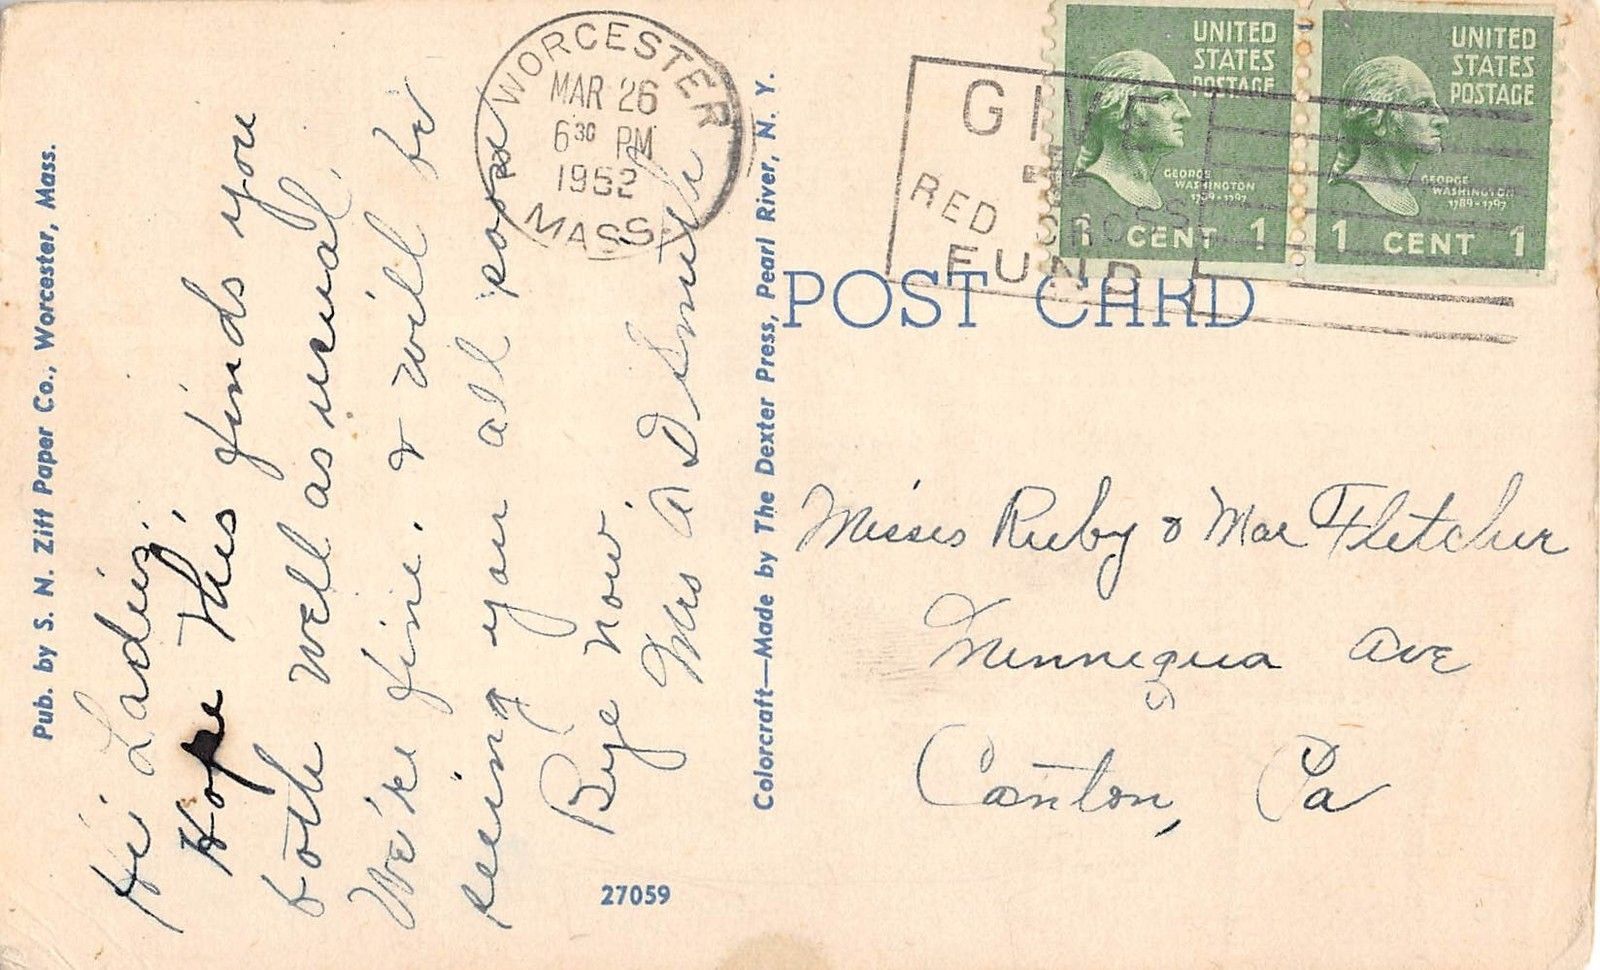 Pub. by S. N. Ziff Paper Co., Worcester, Mass.
Hi Ladies,
Hope this finds you
both well as usual.
We're fine. & will be
seeing you all soon
Bye now.
Mrs A D Smith
27059
Colorcraft—Made by The Dexter Press, Pearl River, N. Y.
WORCESTER
MAR 26
6 30 PM
1952
MASS.
GIVE
RED CROSS
FUND
UNITED
STATES
POSTAGE
GEORGE
WASHINGTON
1789-1797
1 CENT 1
UNITED
STATES
POSTAGE
GEORGE
WASHINGTON
1789-1797
1 CENT 1
POST CARD
Misses Ruby & Mae Fletcher
Minnequa Ave
Canton, Pa